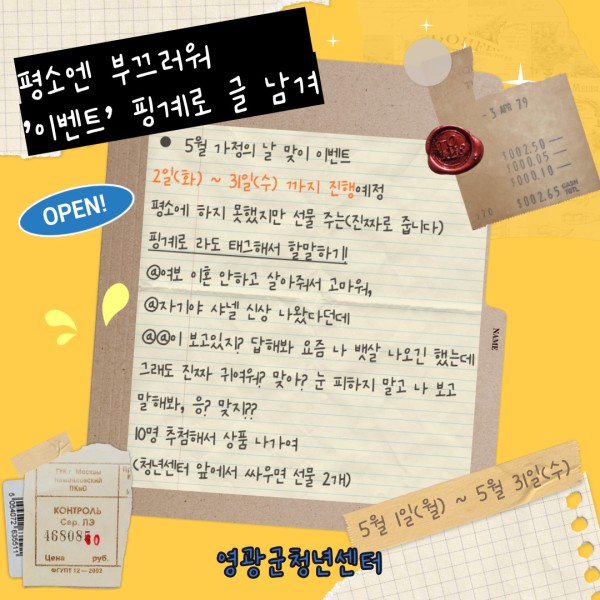 평소엔 부끄러워
'이벤트' 핑계로 글 남겨
- 3 APR 79
$002.50
$000.05
$000.10
$002.65 CASH
TOTL
OPEN!
● 5월 가정의 날 맞이 이벤트
2일(화) ~ 31일(수) 까지 진행예정
평소에 하지 못했지만 선물 주는(진짜로 줍니다)
핑계로 라도 태그해서 할말하기!
@여보 이혼 안하고 살아줘서 고마워,
@자기야 샤넬 신상 나왔다던데
@@이 보고있지? 답해봐 요즘 나 뱃살 나오긴 했는데
그래도 진짜 귀여워? 맞아? 눈 피하지 말고 나 보고
말해봐, 응? 맞지??
10명 추첨해서 상품 나가여
(청년센터 앞에서 싸우면 선물 2개)
NAME
КОНТРОЛЬ
Сер. ЛЭ
Цена руб.
ФГУПТ 12 — 2002
5월 1일(월) ~ 5월 31일(수)
영광군청년센터